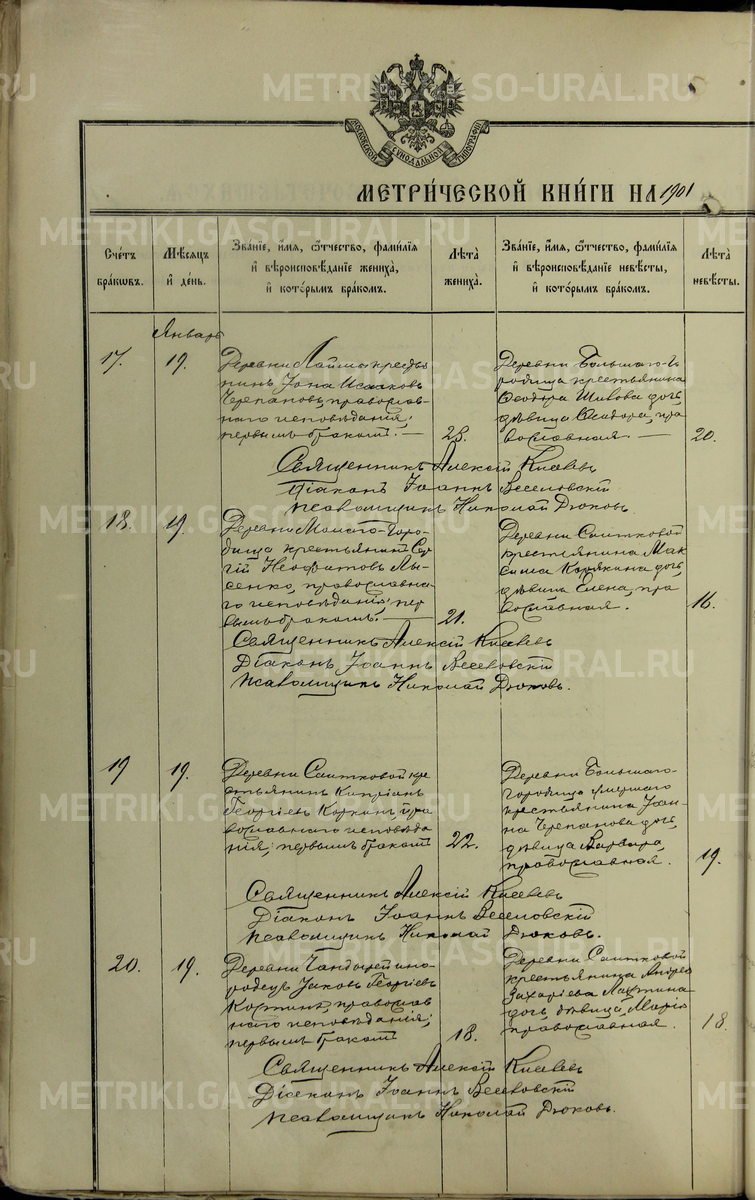 METRIKI.GASO-URAL.RU
МОСКОВСКОЙ СѴНОДАЛЬНОЙ ТИПОГРАФІИ
МЕТРИ́ЧЕСКОЙ КНИ́ГИ НА 1901
Сче́тъ бра́кѡвъ.
Мѣ́сяцъ и҆ де́нь.
Зва́нїе, и҆́мя, ѻ҆́тчество, фами́лїя и҆ вѣроисповѣ́данїе жениха̀, и҆ кото́рымъ бра́комъ.
Лѣта̀ жениха̀.
Зва́нїе, и҆́мя, ѻ҆́тчество, фами́лїя и҆ вѣроисповѣ́данїе невѣ́сты, и҆ кото́рымъ бра́комъ.
Лѣта̀ невѣ́сты.
Январь
17.
19.
Деревни Лаймы кресть
янинъ Іона Исааковъ
Черепановъ, православ
наго исповѣданія;
первымъ бракомъ. —
23.
Деревни Большаго-Го
родища крестьянина
Ѳеодора Шивова дочь,
дѣвица Ѳеодора, пра
вославная. —
20.
Священникъ Алексій
Діаконъ Іоаннъ Веселовскій
Псаломщикъ Николай Дюковъ.
18.
19.
Деревни Малаго-Горо-
дища крестьянинъ Сер
гій Неофитовъ Лы-
сенко, православна-
го исповѣданія; пер
вымъ бракомъ. —
21.
Деревни Саитковой
крестьянина Мак
сима Корякина дочь,
дѣвица Елена, пра
вославная.
16.
Священникъ Алексій
Діаконъ Іоаннъ Веселовскій
Псаломщикъ Николай Дюковъ.
19
19.
Деревни Саитковой кре
стьянинъ Кипріанъ
Георгіевъ пра
вославнаго исповѣда
нія; первымъ бракомъ
22.
Деревни Большаго-
Городища умершаго
крестьянина Іоан
на Черепанова дочь,
дѣвица Варвара,
православная.
19.
Священникъ Алексій
Діаконъ Іоаннъ Веселовскій
Псаломщикъ Николай Дюковъ.
20.
19.
Деревни ино-
родецъ Іаковъ Георгіевъ
православ
наго исповѣданія;
первымъ бракомъ
18.
Деревни Саитковой
крестьянина Андрея
Захаріева
дочь, дѣвица Марія
православная.
18.
Священникъ Алексій
Діаконъ Іоаннъ Веселовскій
Псаломщикъ Николай Дюковъ.